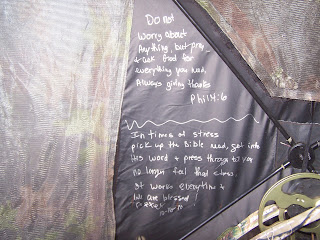 Do not
worry about
Anything, but pray,
+ ask God for
everything you need,
Always giving thanks
Phil 4:6
In times of stress
pick up the Bible read, get into
His word + press through
no longer feel that stress.
It works everytime +
We are blessed!